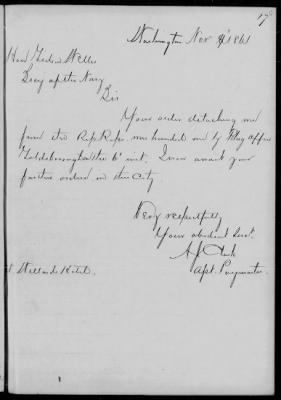 17
Washington Nov 9" 1861
Hon Gideon Welles
Secy of the Navy
Sir
Your order detaching me
from the Rip Raps was handed me by Flag Officer
Goldsborough on the 6" inst. I now await your
further orders in this City.
Very respectfully
Your obedient Servt.
A J Clark
Asst. Paymaster.
at Willards Hotel.